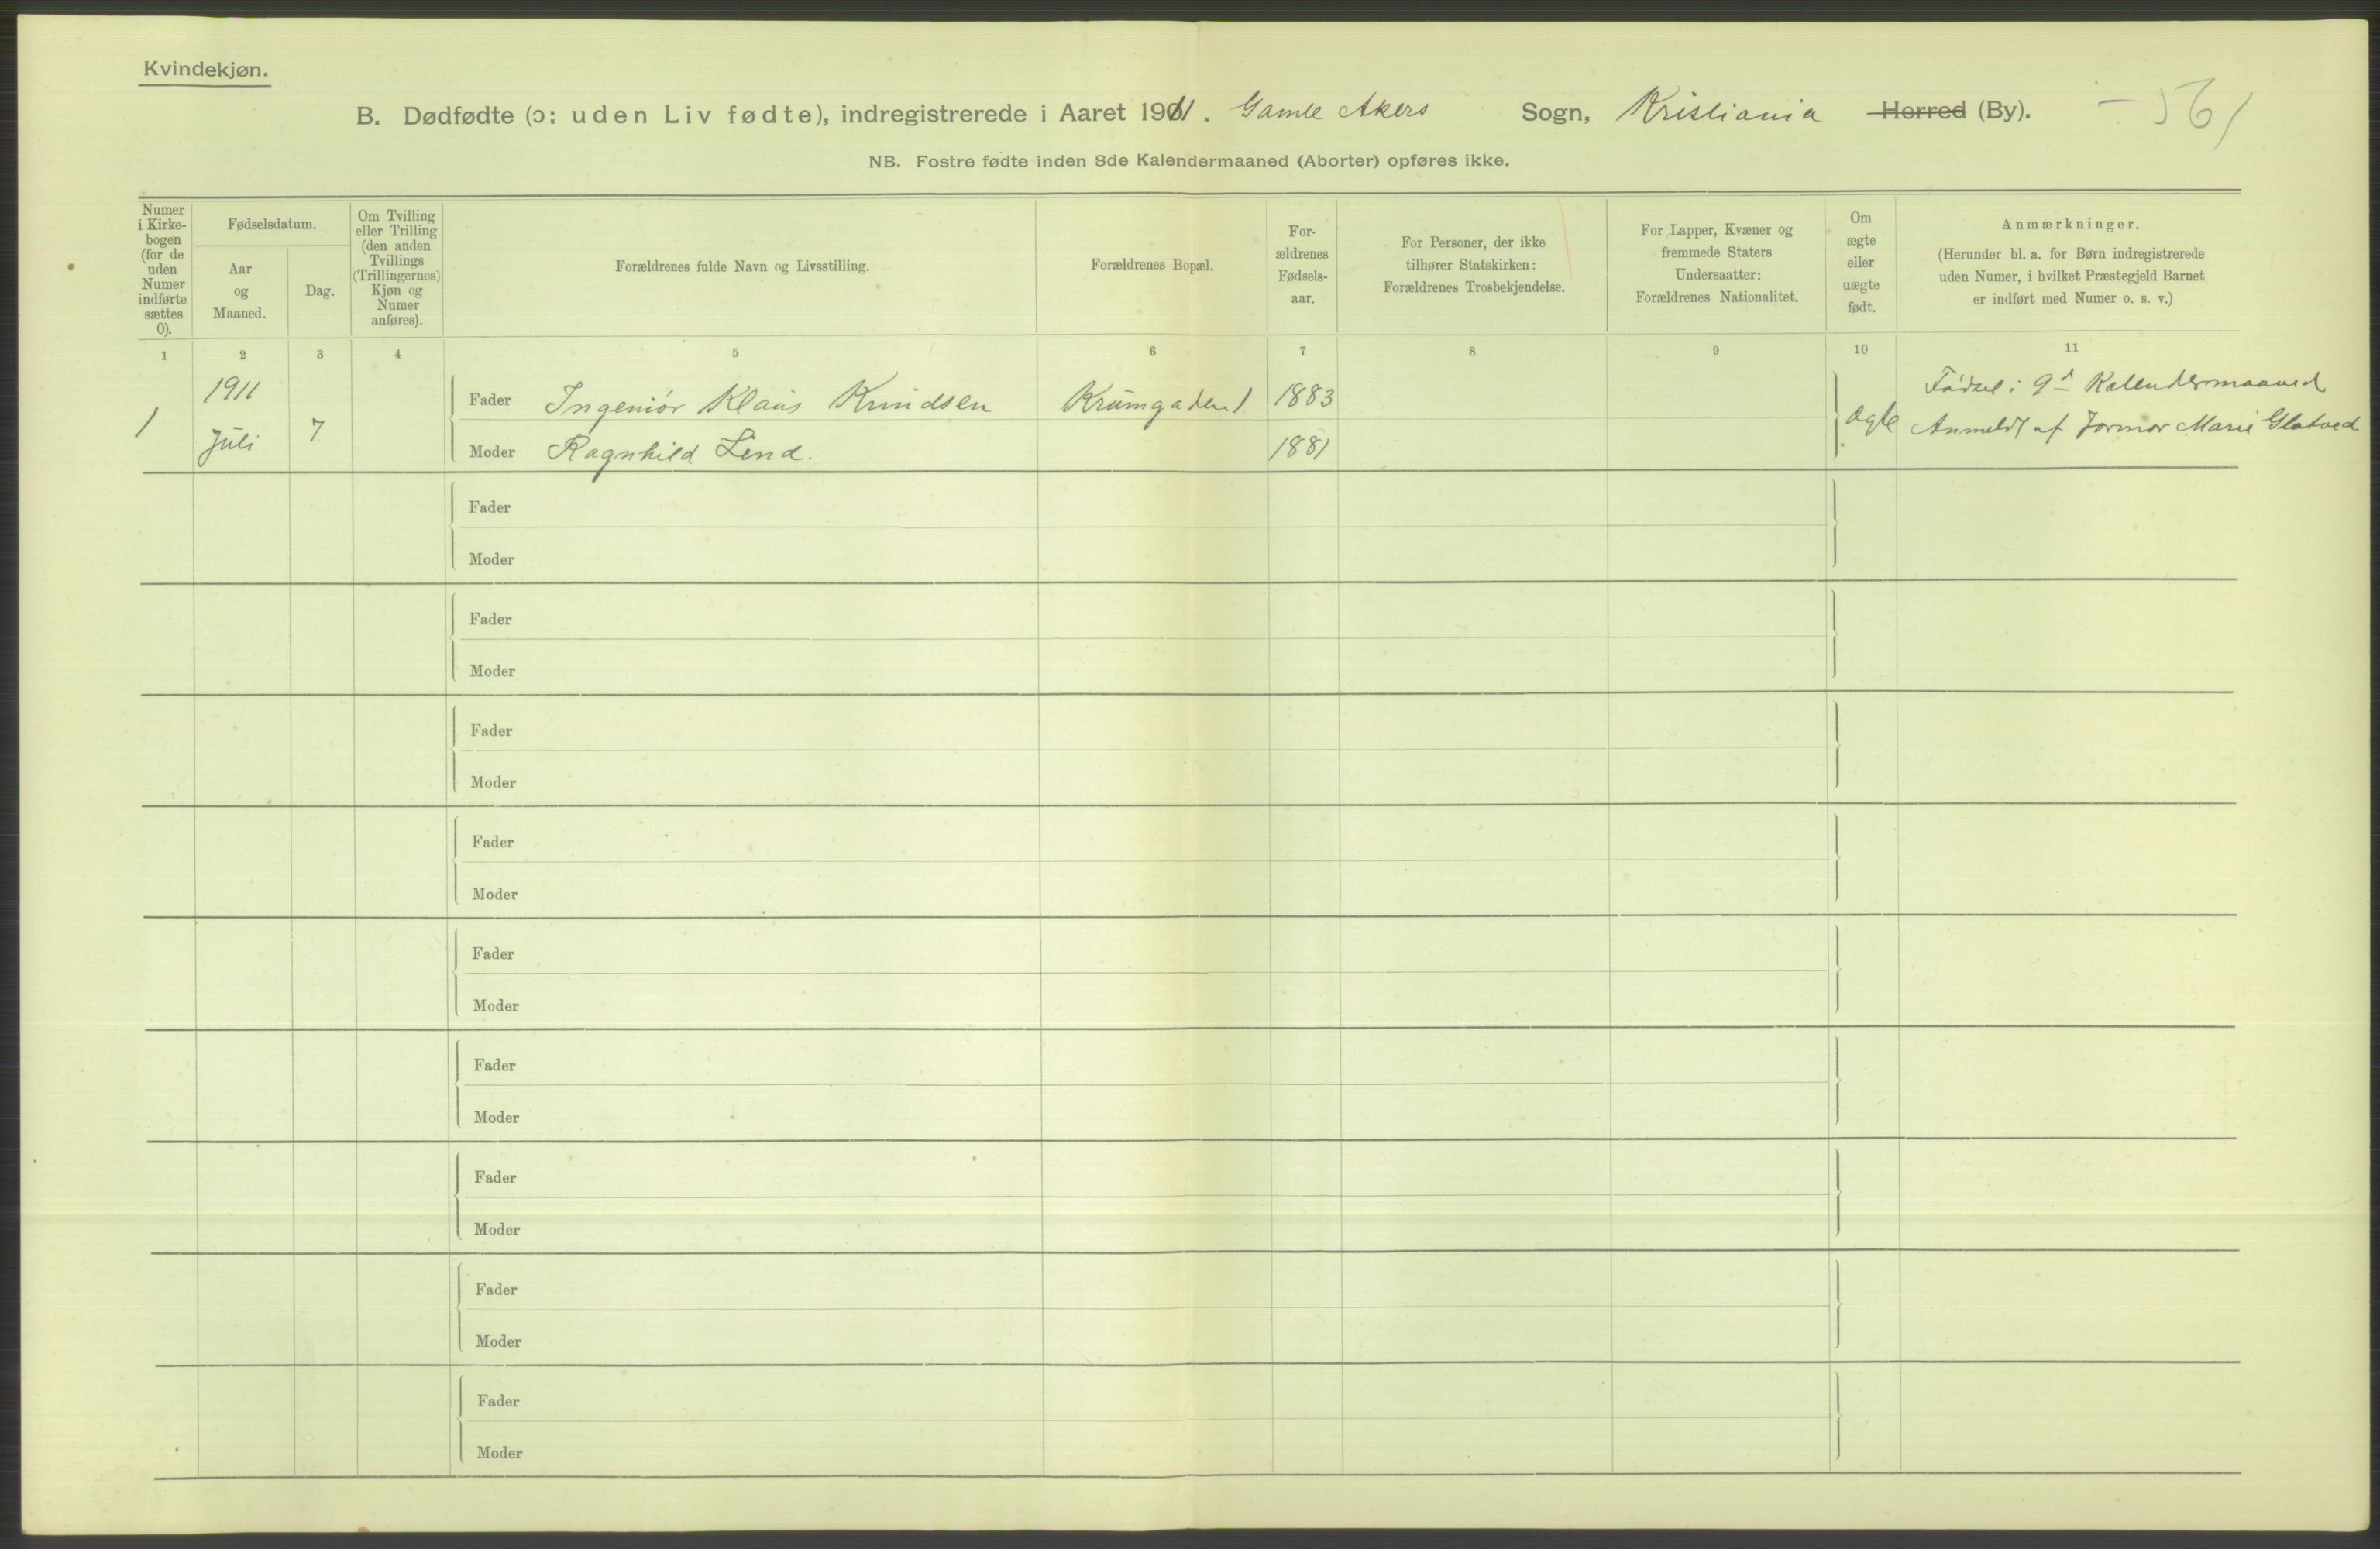 Kvindekjøn.
B. Dødfødte (ɔ: uden Liv fødte), indregistrerede i Aaret 1911. Gamle Akers Sogn, Kristiania Herred (By).
NB. Fostre fødte inden 8de Kalendermaaned (Aborter) opføres ikke.
Numer
i Kirke-
bogen
(for de
uden
Numer
indførte
sættes
0).
Fødselsdatum.
Aar
og
Maaned.
Dag.
Om Tvilling
eller Trilling
(den anden
Tvillings
(Trillingernes)
Kjøn og
Numer
anføres).
Forældrenes fulde Navn og Livsstilling.
Forældrenes Bopæl.
For-
ældrenes
Fødsels-
aar.
For Personer, der ikke
tilhører Statskirken:
Forældrenes Trosbekjendelse.
For Lapper, Kvæner og
fremmede Staters
Undersaatter:
Forældrenes Nationalitet.
Om
ægte
eller
uægte
født.
Anmærkninger.
(Herunder bl. a. for Børn indregistrerede
uden Numer, i hvilket Præstegjeld Barnet
er indført med Numer o. s. v.)
1 2 3 4 5 6 7 8 9 10 11
1 1911 Juli 7
Fader Ingeniør Klaus Knudsen Krumgaden 1 1883
Moder Ragnhild Lind. 1881
ægte
Fødsel i 9d Kalendermaaned
Anmeldt af Jormor Marie
Fader
Moder
Fader
Moder
Fader
Moder
Fader
Moder
Fader
Moder
Fader
Moder
Fader
Moder
Fader
Moder
Fader
Moder